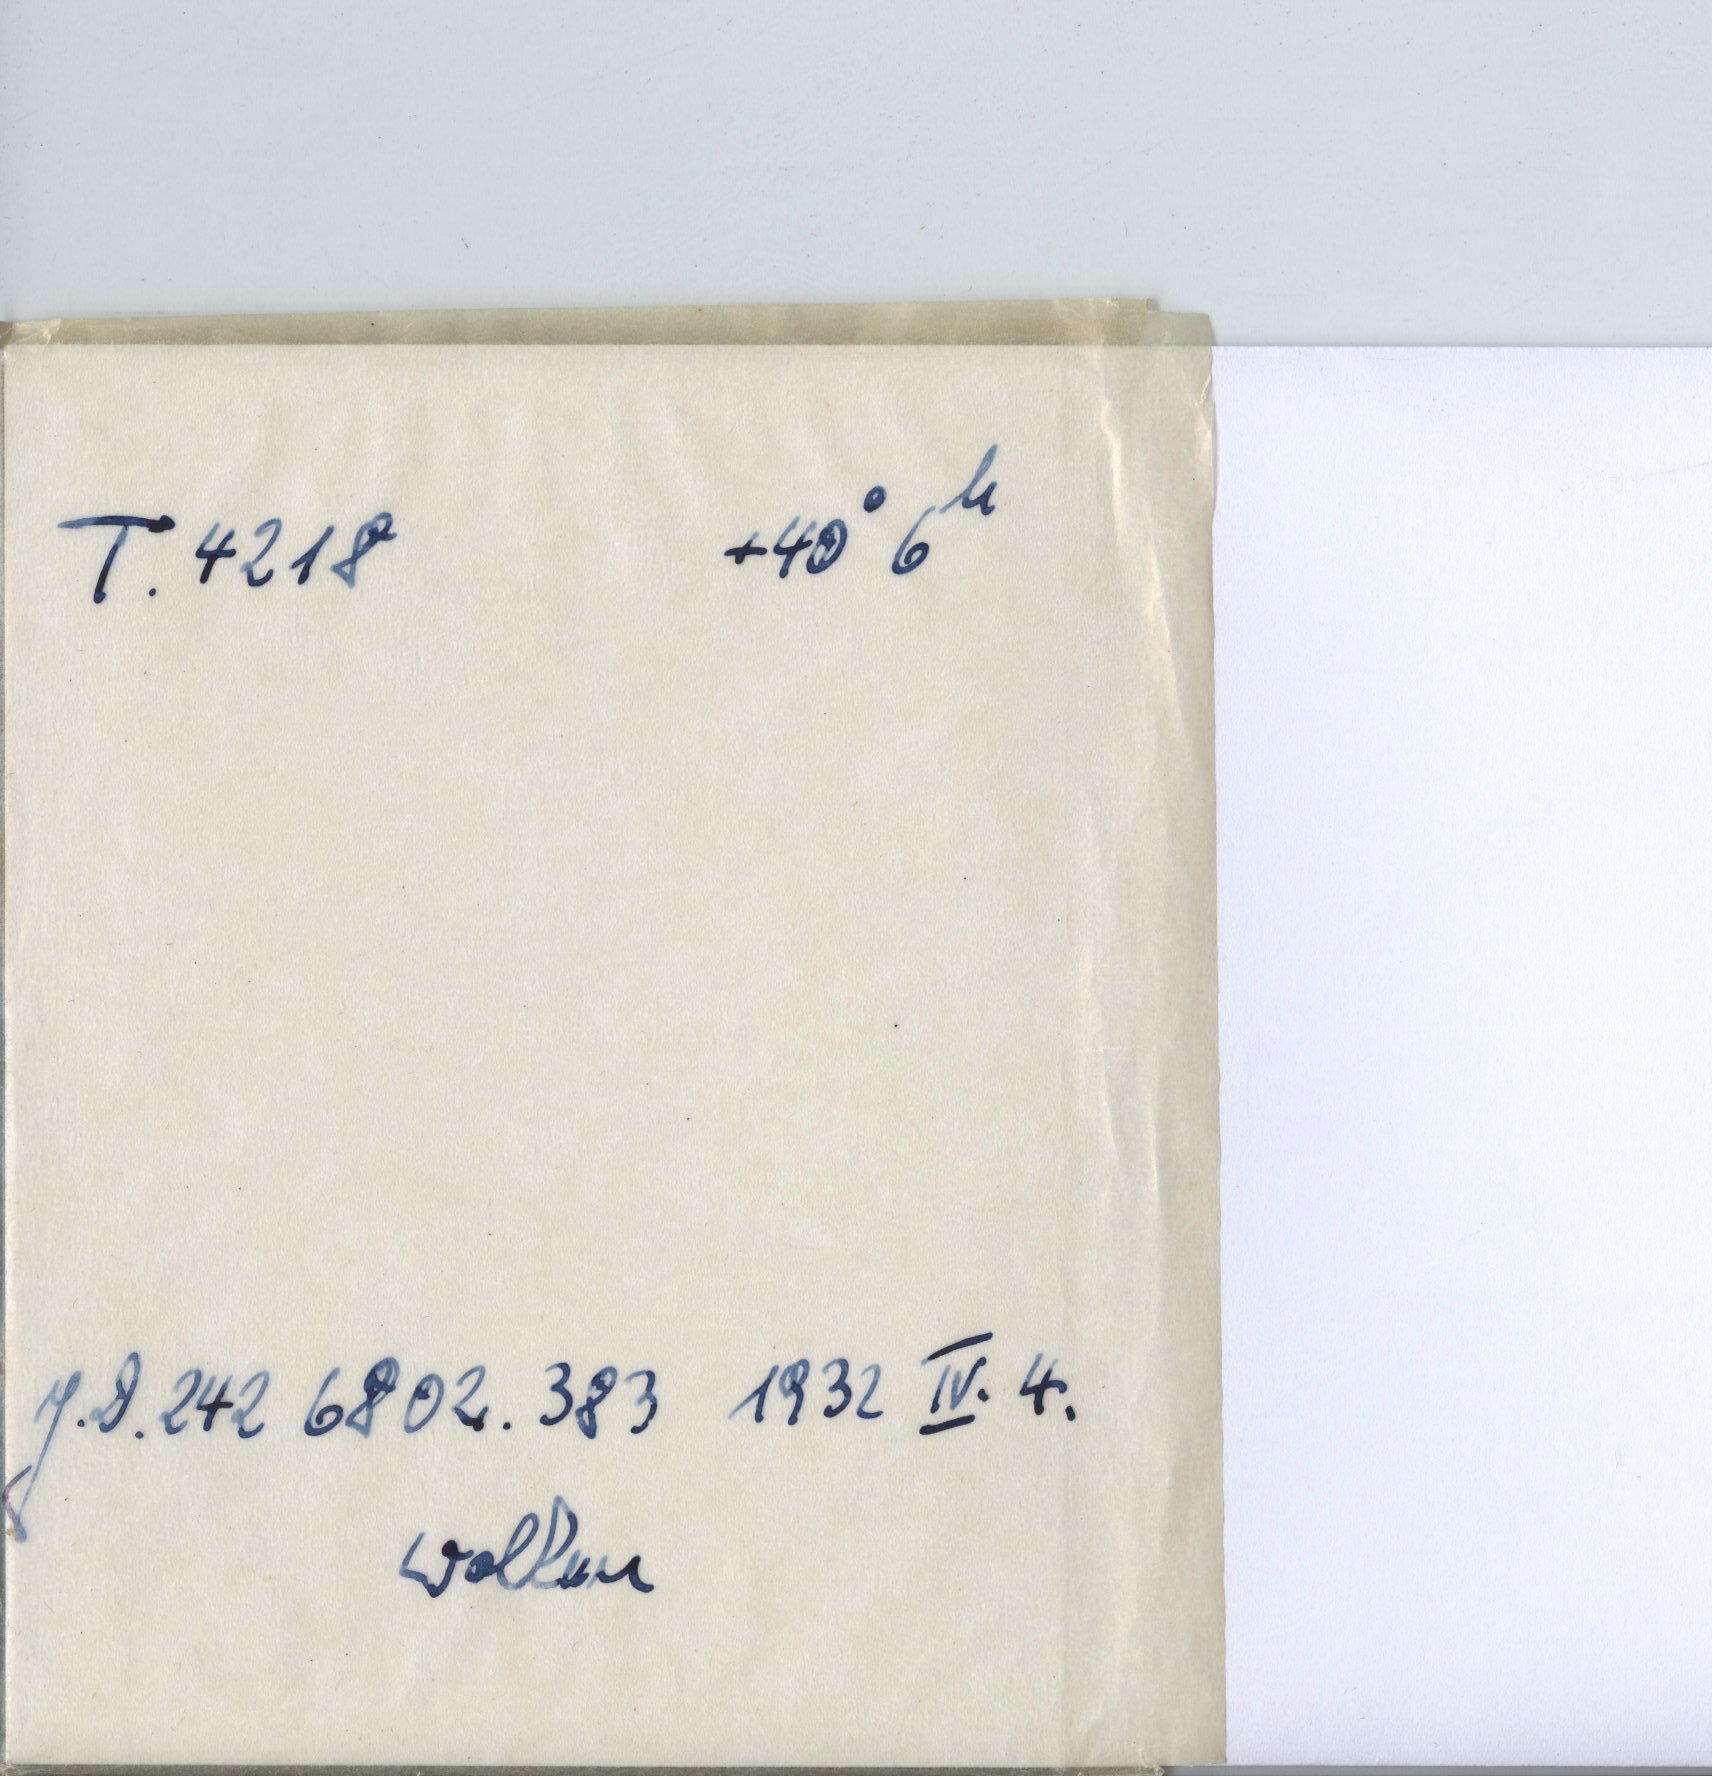 T. 4218 +40° 6h
J.D. 242 6802. 383 1932 IV. 4.
Wolken